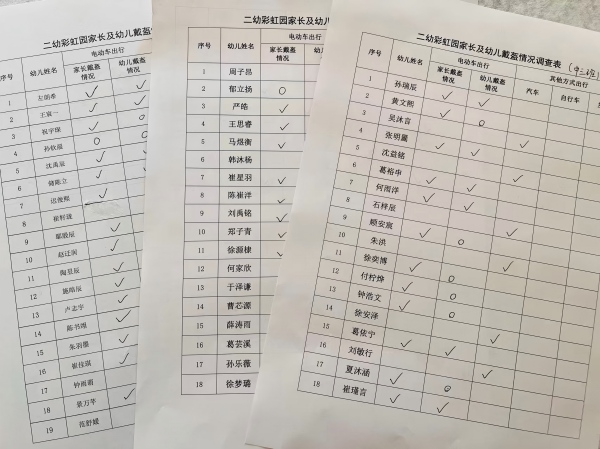 二幼彩虹园家长及幼儿戴盔
序号 幼儿姓名 电动车出行
家长戴盔情况 幼儿戴盔
1 左朗希 ✓ ✓
2 王宸一 ✓
3 祝宇琛 ✓
4 孙钦宸 ○ ○
5 沈禹辰 ✓ ✓
6 ✓ ✓
7 ✓
8
9 ✓
10 赵迁润 ✓
11 陶昱辰 ✓
12 施皓辰 ✓
13 卢志宇 ✓
14 陈书理 ✓
15 朱羽墨 ✓
16 崔佳琪 ✓ ✓
17 钟雨萧
18 景万华 ✓
19 范舒媛
二幼彩虹园家长及幼
序号 幼儿姓名 电动车出行
家长戴盔情况
1 周子昂
2 郁立扬 ○
3 严皓 ✓
4 王思睿 ✓
5 马煜衡 ✓
6 韩沐杨
7 崔星羽 ✓
8 陈崔洋 ✓
9 刘禹铭 ✓
10 郑子青 ✓
11 徐源棣 ✓
12 何家欣
13 于泽谦
14 曹芯源
15 薛涛雨
16 葛芸溪
17 孙乐薇
18 徐梦璐
二幼彩虹园家长及幼儿戴盔情况调查表（中三班）
序号 幼儿姓名 电动车出行 其他方式出行
家长戴盔情况 幼儿戴盔情况 汽车 自行车
1 孙瑞辰 ✓ ✓
2 黄文熙 ✓ ○
3 吴沐言 ✓
4 张明曦 ✓
5 沈益铭 ✓
6 葛裕申 ✓ ✓
7 何雨洋 ✓ ✓
8 石梓辰 ✓
9 顾安宸 ✓
10 朱洪 ○ ✓
11 徐奕博 ✓
12 付柠烨 ✓ ○
13 钟浩文 ✓ ○
14 徐安泽 ✓ ○
15 葛依宁 ✓
16 刘敏行 ✓ ✓
17 夏沐涵 ✓ ✓
18 崔瑾言 ✓ ○
✓ ✓